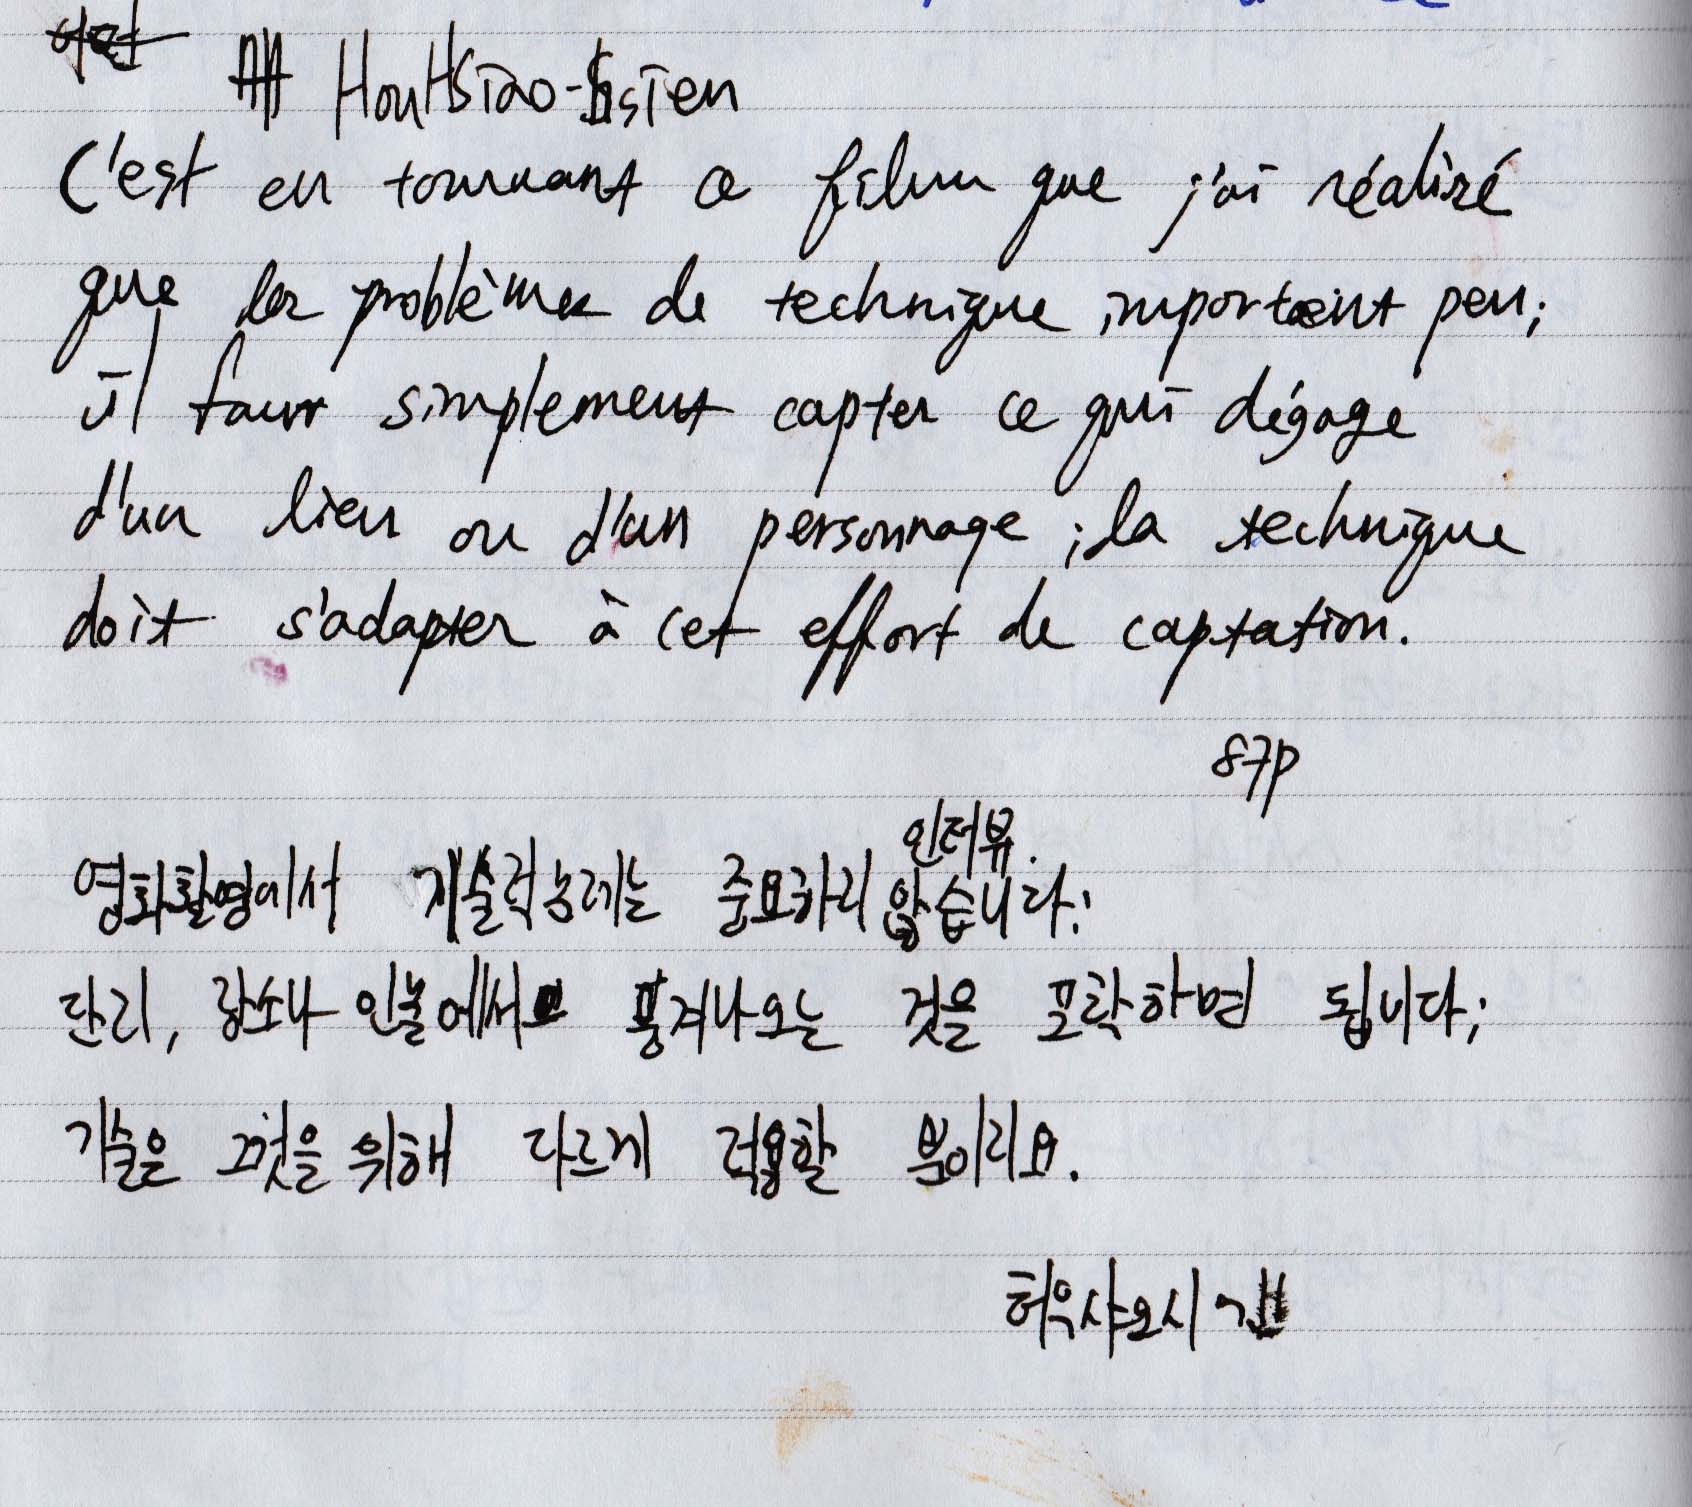 Hou Hsiao-Hsien
C'est en tournant ce film que j'ai réalisé
que les problèmes de technique importaient peu;
il faut simplement capter ce qui dégage
d'un lieu ou d'un personnage ; la technique
doit s'adapter à cet effort de captation.
87p
인터뷰.
영화촬영에서 기술적문제는 중요하지 않습니다;
단지, 장소나 인물에서 풍겨나오는 것을 포착하면 됩니다;
기술은 그것을 위해 다르게 적용할 뿐이지요.
허우샤오시엔